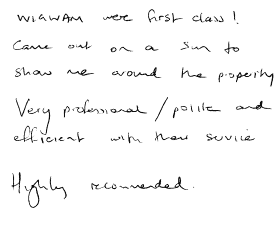 WIGWAM were first class!
Came out on a Sun to
show me around the property
Very professional / polite and
efficient with their service
Highly recommended.